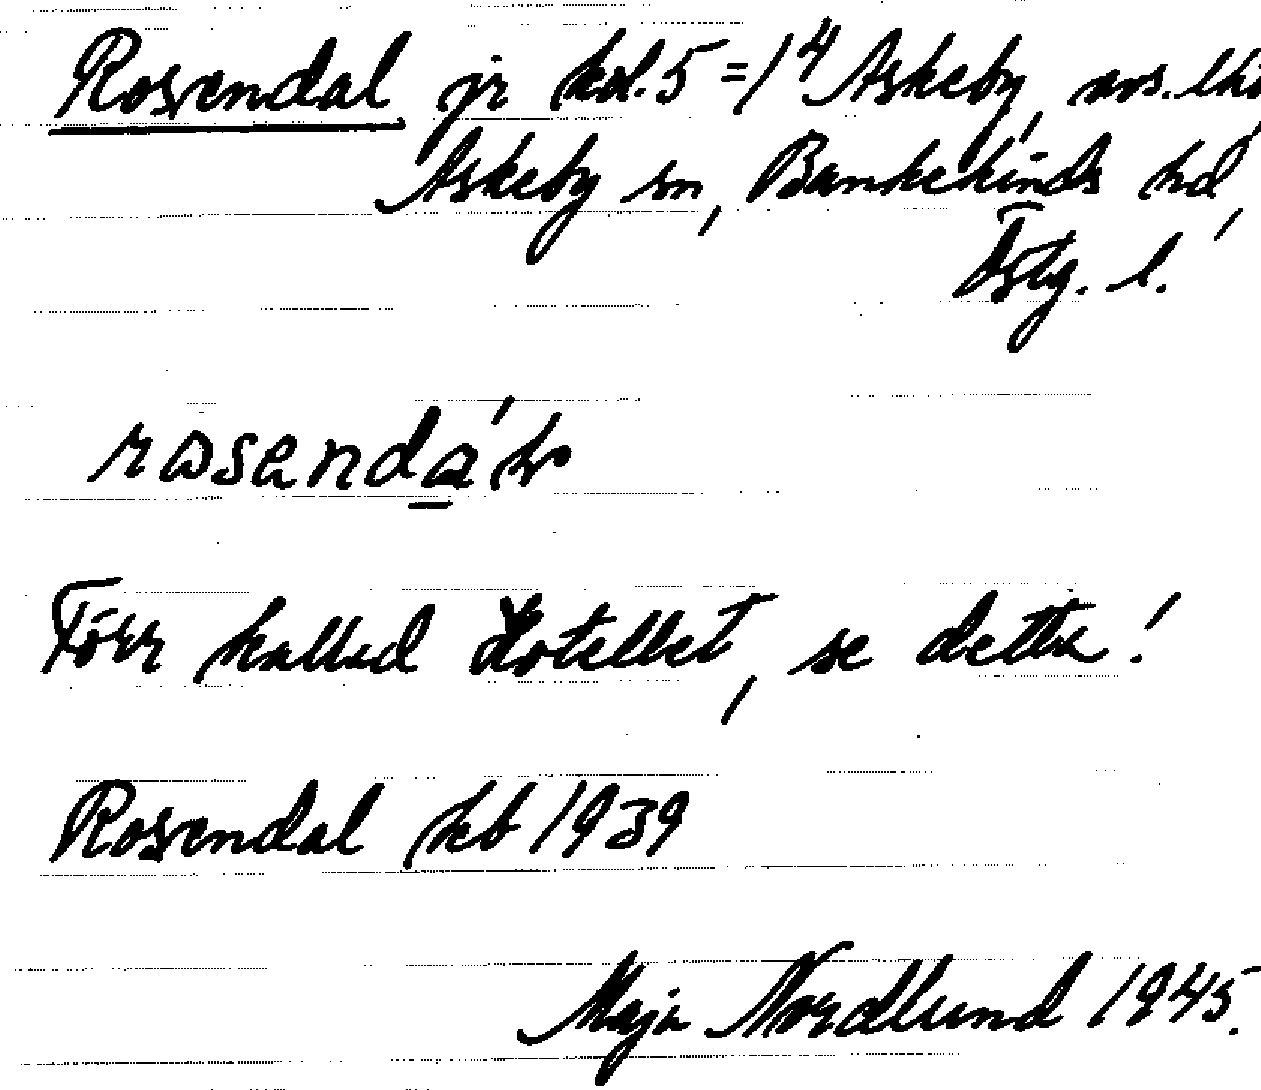 Rosendal gr kd. 5 = 1⁴ Askeby, avs. lht,
Askeby sn, Bankekinds hd,
Östg. l.
rosendá
Förr kallad Hotellet, se detta!
Rosendal kb 1939
Maja Nordlund 1945.